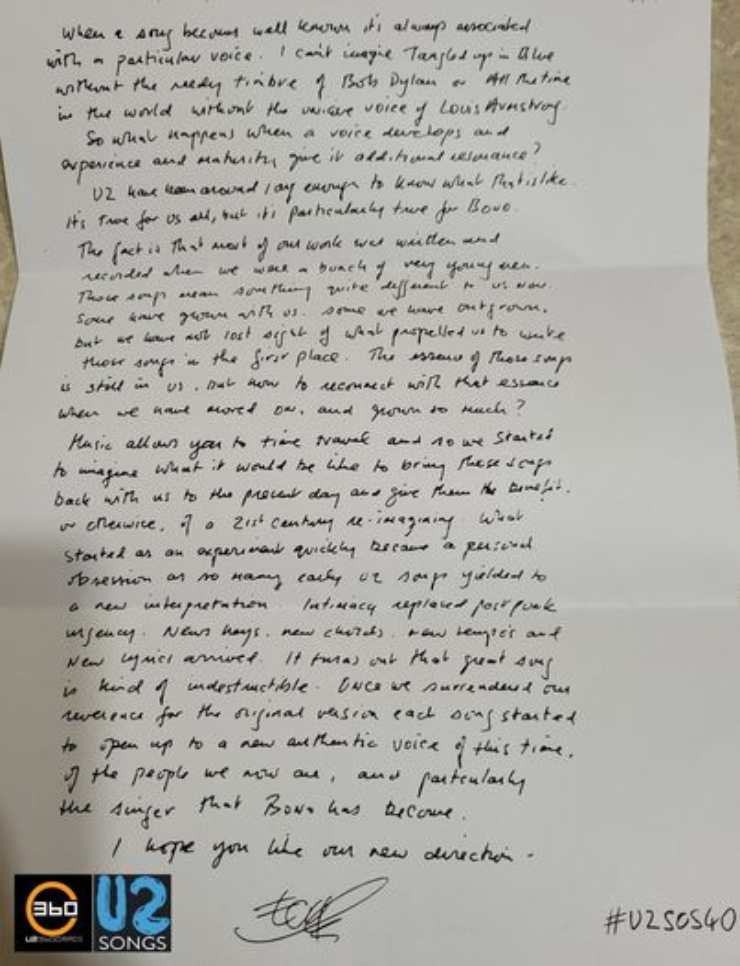 When a song becomes well known it's always associated
with a particular voice. I can't imagine Tangled up in Blue
without the reedy timbre of Bob Dylan or All the time
in the world without the unique voice of Louis Armstrong.
So what happens when a voice develops and
experience and maturity give it additional resonance?
U2 have been around long enough to know what that is like.
It's true for us all, but it's particularly true for Bono.
The fact is that most of our work was written and
recorded when we were a bunch of very young men.
Those songs mean something quite different to us now.
Some have grown with us. some we have outgrown.
but we have not lost sight of what propelled us to write
those songs in the first place. The essence of those songs
is still in us, but how to reconnect with that essence
when we have moved on, and grown so much?
Music allows you to time travel and so we started
to imagine what it would be like to bring these songs
back with us to the present day and give them the benefit,
or otherwise, of a 21st century re-imagining. What
started as an experiment quickly became a personal
obsession as so many early U2 songs yielded to
a new interpretation. Intimacy replaced post punk
urgency. New keys. new chords. new tempos and
new lyrics arrived. It turns out that great song
is kind of indestructible. Once we surrendered our
reverence for the original version each song started
to open up to a new authentic voice of this time,
of the people we now are, and particularly
the singer that Bono has become.
I hope you like our new direction.
360
U2
SONGS
#U2SOS40